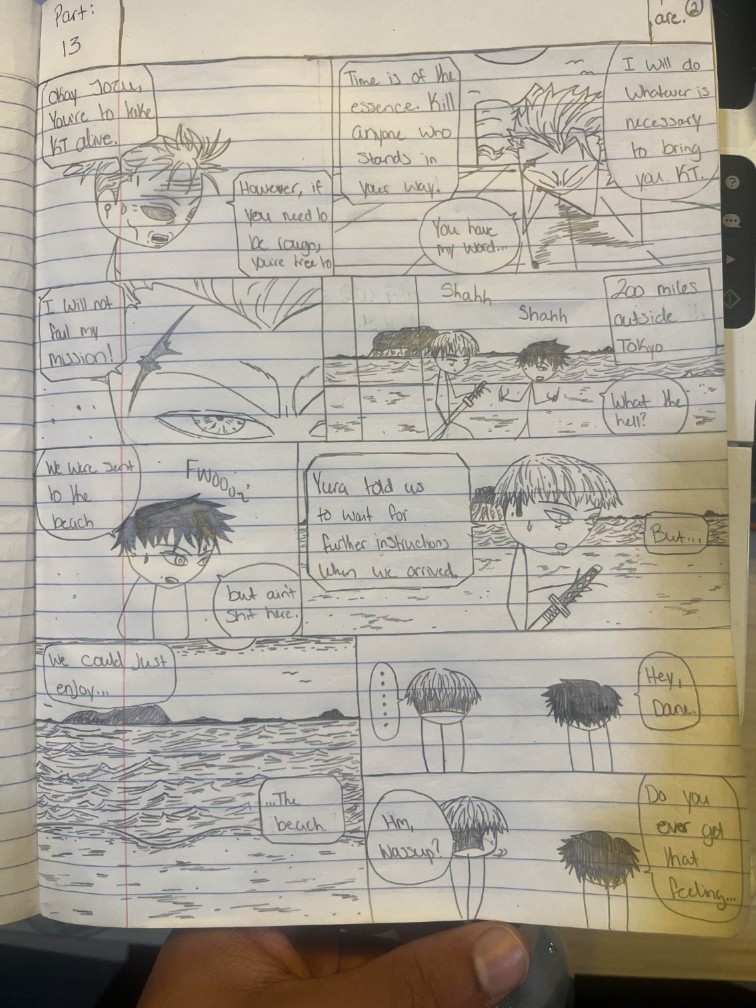 Part:
13
are. 2
Okay Jozu,
you're to take
KT alive.
However, if
you need to
be rough,
you're free to
Time is of the
essence. Kill
anyone who
stands in
your way.
You have
my word...
I will do
whatever is
necessary
to bring
you KT.
I will not
fail my
mission!
Shahh
Shahh
200 miles
outside
Tokyo
What the
hell?
We were sent
to the
beach
FWOOOZ
but ain't
shit here.
Yura told us
to wait for
further instructions
when we arrived.
But...
We could just
enjoy...
...The
beach.
......
Hey,
Dane.
Hm,
Wassup?
Do you
ever get
that
feeling...